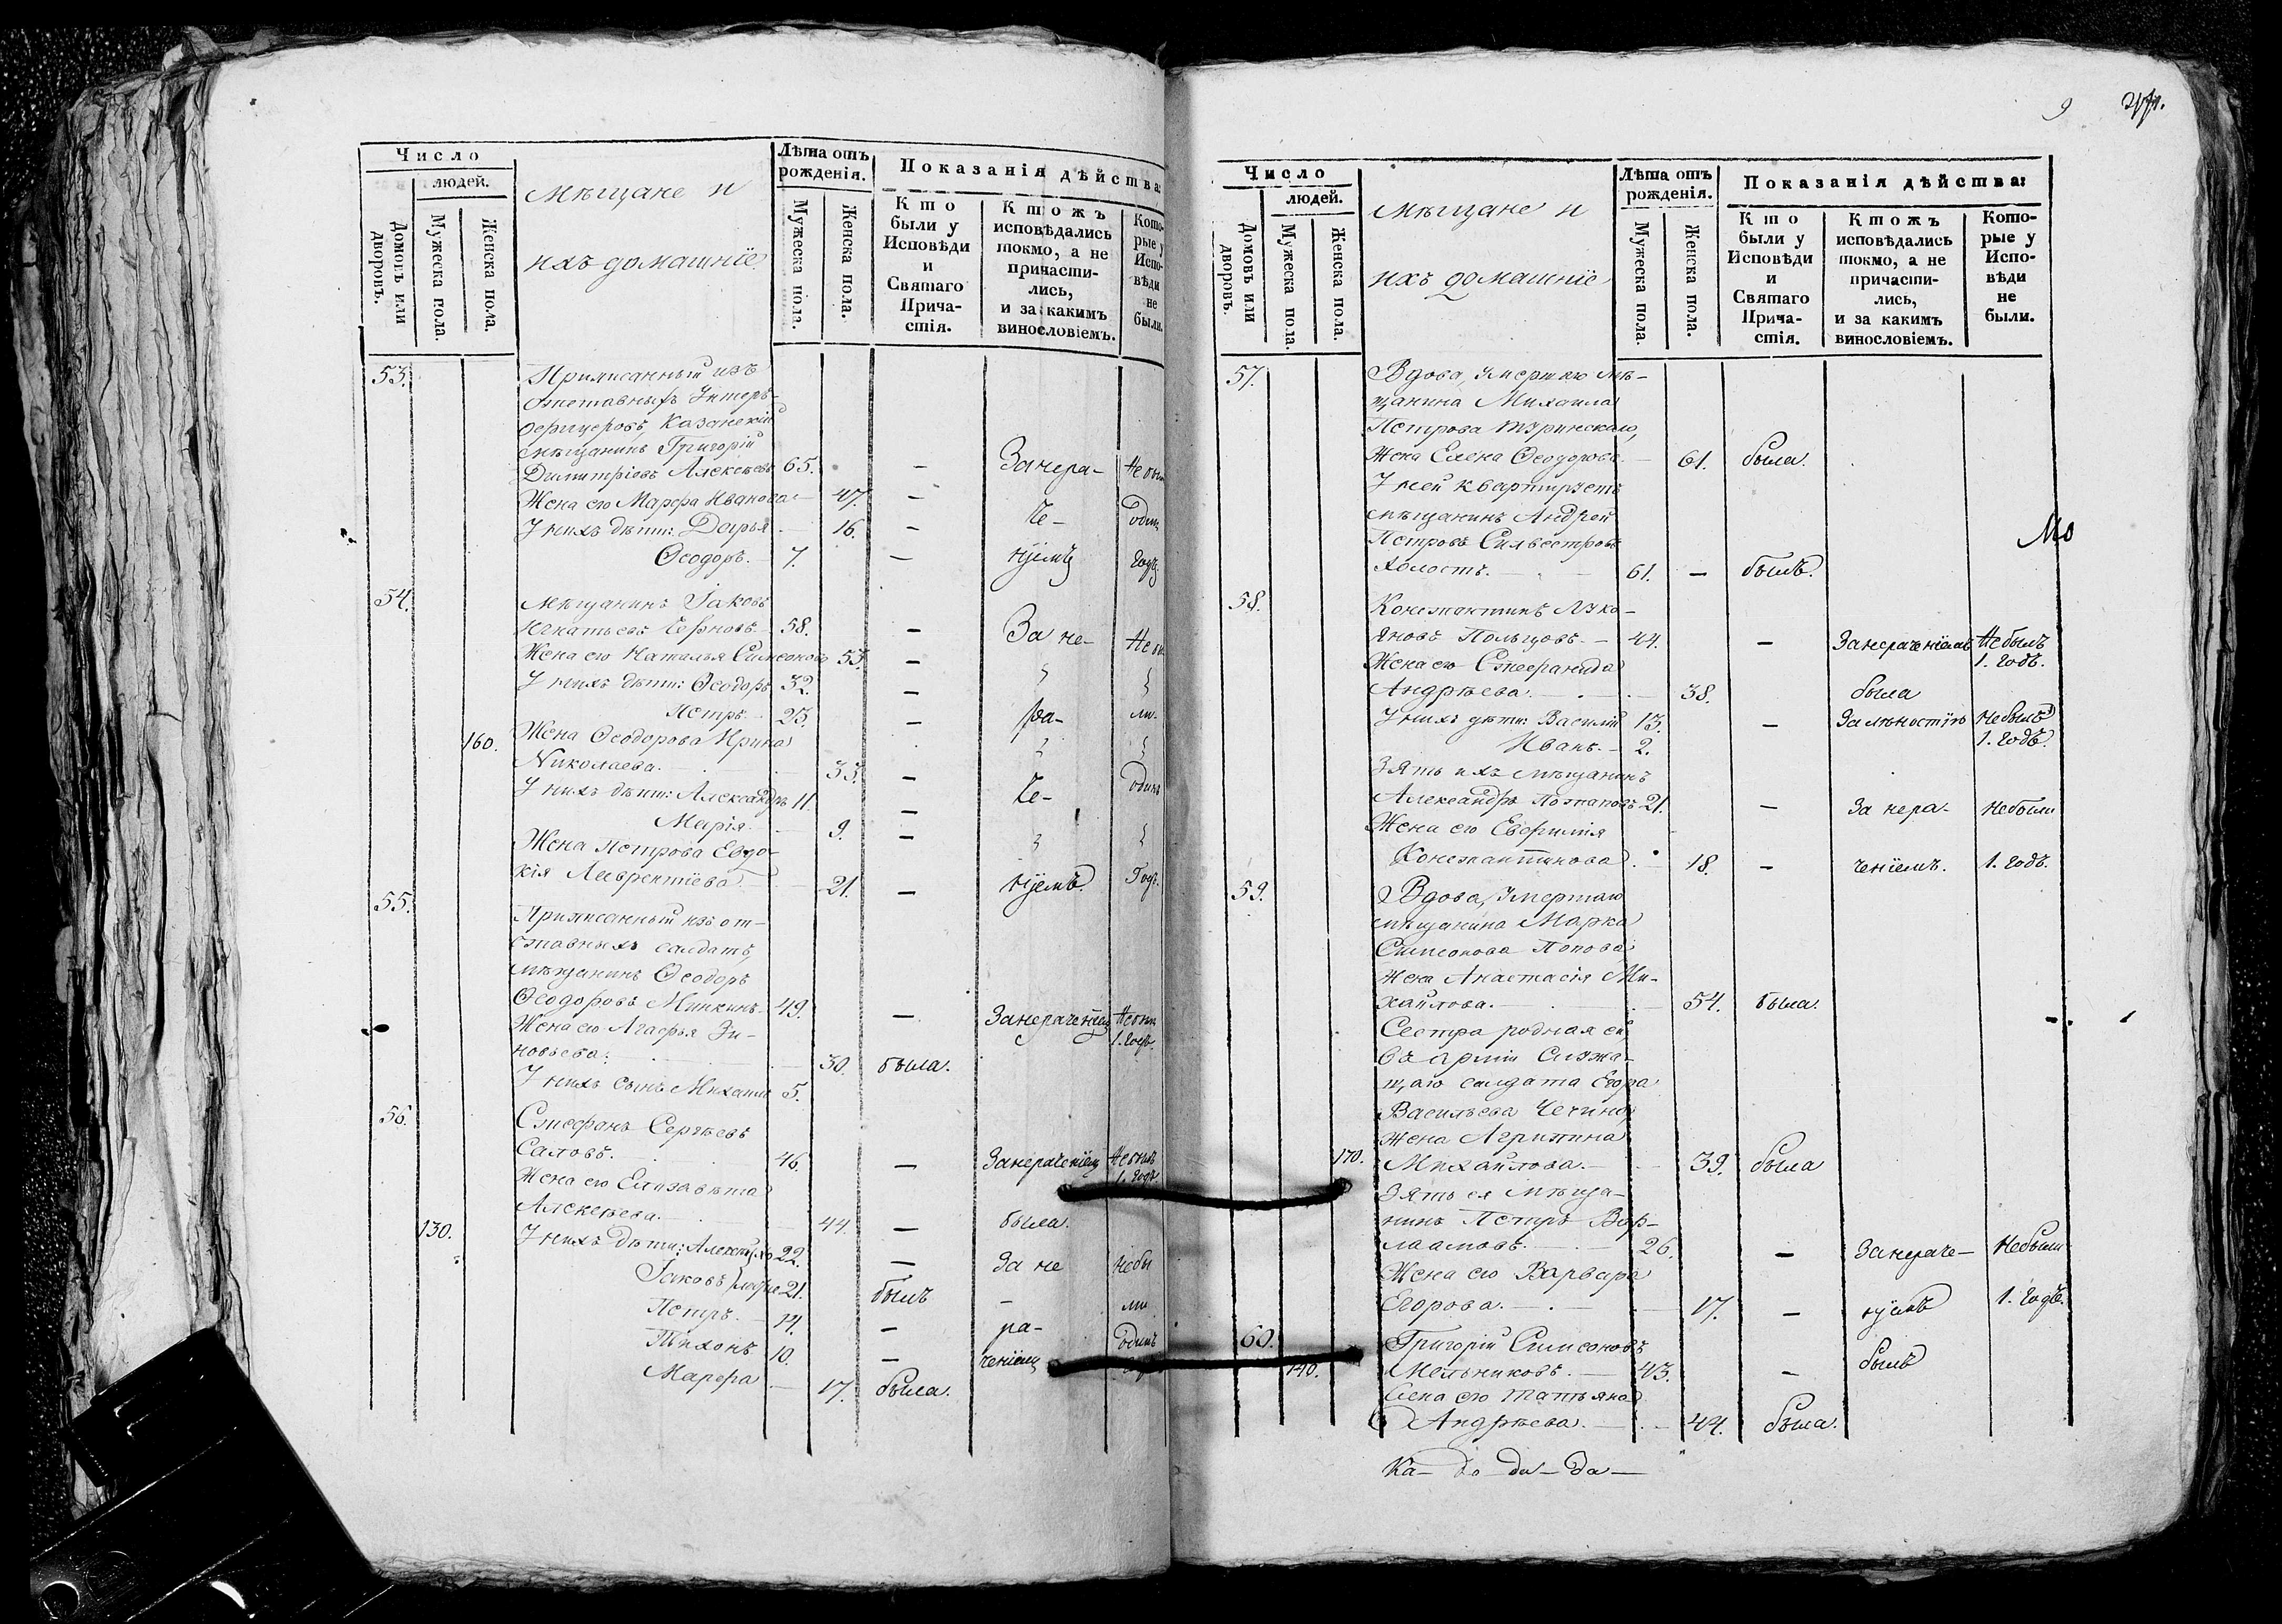 Число
людей.
Домовъ или дворовъ.
Мужеска пола.
Женска пола.
Мѣщане и
ихъ домашніе
Лѣта отъ рожденія.
Мужеска пола.
Женска пола.
Показанія дѣйства:
Кто были у Исповѣди и Святаго Прича-стія.
Ктожъ исповѣдались токмо, а не причасти-лись, и за какимъ винословіемъ.
Кото-рые у Испо-вѣди не были.
53. Приписанный изъ
отставныхъ Унтеръ-
офицеровъ, Казанскій
мѣщанинъ Григорій
Димитріевъ Алексѣевъ 65. — Занера- Не бы
Жена его Марфа Иванова — 47. — че- один
У нихъ дѣти: Дарья — 16. — нѣмъ годъ.
Ѳеодоръ. — 7. —
54. Мѣщанинъ Іаковъ
Игнатьевъ Черновъ. 58. — За не- Не бы
Жена его Наталья Симеонова 53. —
У нихъ дѣти: Ѳеодоръ 32. —
Петръ. — 23. — ра- ли.
160. Жена Ѳеодорова Ирина
Николаева. — 33. —
У нихъ дѣти: Александръ 11. — че- одинъ
Марія. — 9. —
Жена Петрова Евдо-
кія Лаврентіева — 21. — ніемъ. Годъ.
55. Приписанный изъ от-
ставныхъ солдатъ,
мѣщанинъ Ѳеодоръ
Ѳеодоровъ Минкинъ. 49. — Занераченіем Не бы
1. годъ.
Жена его Агафья Зи-
новьева. — 30. была.
У нихъ сынъ Михаилъ 5.
56. Стефанъ Сергѣевъ
Саловъ. — 46. — Занераченіем Не былъ
1. годъ
Жена его Елизавета
Алексѣева. — 44. — была.
130. У нихъ дѣти: 22. — За не небы
Іаковъ 21. былъ — ли
Петръ. — 14. — ра- одинъ
Тихонъ 10. — ченіем
Марфа — 17. была.
9
Число
людей.
Домовъ или дворовъ.
Мужеска пола.
Женска пола.
Мѣщане и
ихъ домашніе
Лѣта отъ рожденія.
Мужеска пола.
Женска пола.
Показанія дѣйства:
Кто были у Исповѣди и Святаго Прича-стія.
Ктожъ исповѣдались токмо, а не причасти-лись, и за какимъ винословіемъ.
Кото-рые у Испо-вѣди не были.
57. Вдова, умершаго мѣ-
щанина Михаила
Петрова Туринскаго,
Жена Елена Ѳеодорова. — 61. была.
У ней квартируетъ
мѣщанинъ Андрей
Петровъ Сильвестровъ
холостъ. — 61. — былъ.
Мо
58. Константинъ Луко-
яновъ Польцовъ. — 44. — Занераченіемъ Не былъ
1. годъ.
Жена его Стефанида
Андрѣева. — 38. была
У нихъ дѣти: Василій 13. — За лѣностію не былъ
1. годъ.
Иванъ. — 2.
Зять ихъ мѣщанинъ
Александръ Потаповъ 21. — За нера- не были
Жена его Евфимія
Константинова. — 18. — ченіемъ. 1. годъ.
59. Вдова, умершаго
мѣщанина Марка
Симеонова Попова,
жена Анастасія Ми-
хайлова. — 54. была.
Сестра родная ей
въ арміи служа-
щаго солдата Егора
Васильева Чечина,
жена Агрипина
170. Михайлова. — 39. была
Зять ея мѣща-
нинъ Петръ Вар-
лаамовъ. — 26. — Занераче- не были
Жена его Варвара
Егорова. — 17. — ніемъ 1. годъ.
60. Григорій Симеоновъ
140. Мельниковъ. — 43. — былъ
Жена его Татьяна
Андрѣева. — 44. была.
Ка- до- да-